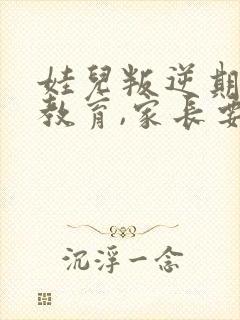 娃兒叛逆期
教育,家長要
沉浮一念